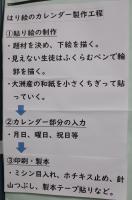 はり絵のカレンダー製作工程
①貼り絵の制作
・題材を決め、下絵を描く。
・見えない生徒はふくらむペンで輪
郭を描く。
・大洲産の和紙を小さくちぎって貼
っていく。
②カレンダー部分の入力
・月日、曜日、祝日等
③印刷・製本
・ミシン目入れ、ホチキス止め、針
山つぶし、製本テープ貼りなど。